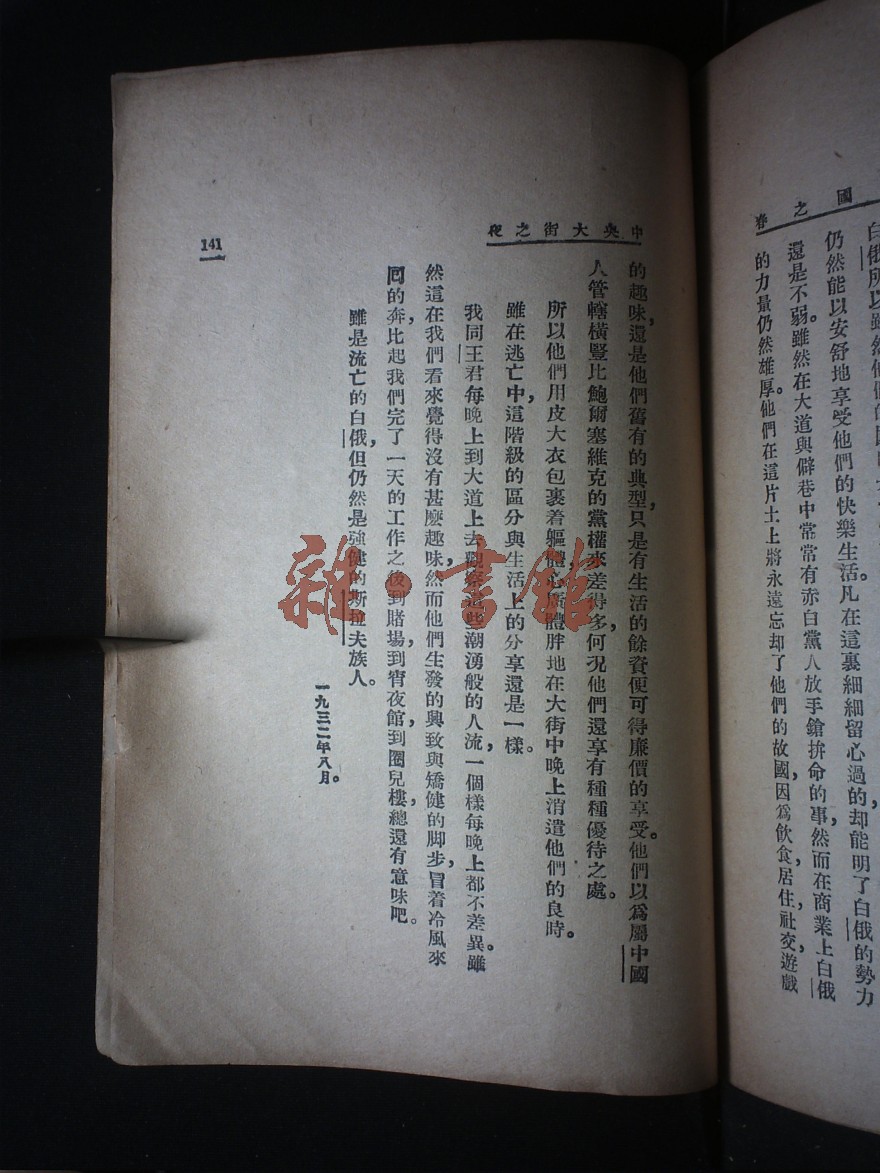 國之春
白俄所以雖然他們的
仍然能以安舒地享受他們的快樂生活。凡在這裏細細留心過的却能明了白俄的勢力
還是不弱。雖然在大道與僻巷中常常有赤白黨人放手鎗拚命的事，然而在商業上白俄
的力量仍然雄厚。他們在這片土上將永遠忘却了他們的故國，因爲飲食，居住，社交，遊戲
中央大街之夜
的趣味，還是他們舊有的典型，只是有生活的餘資便可得廉價的享受。他們以爲屬中國
人管轄橫豎比鮑爾塞維克的黨權來差得多，何況他們還享有種種優待之處。
所以他們用皮大衣包裹着軀體，心廣體胖地在大街中晚上消遣他們的良時。
雖在逃亡中，這階級的區分與生活上的分享還是一樣。
我同王君每晚上到大道上去觀察這些潮湧般的人流，一個樣，每晚上都不差異。雖
然這在我們看來覺得沒有甚麼趣味，然而他們生發的興致與矯健的脚步，冒着冷風來
回的奔，比起我們完了一天的工作之後到賭場，到宵夜館，到圈兒樓，總還有意味吧。
雖是流亡的白俄，但仍然是強健的斯拉夫族人。
一九三二年八月。
141
雜·書館